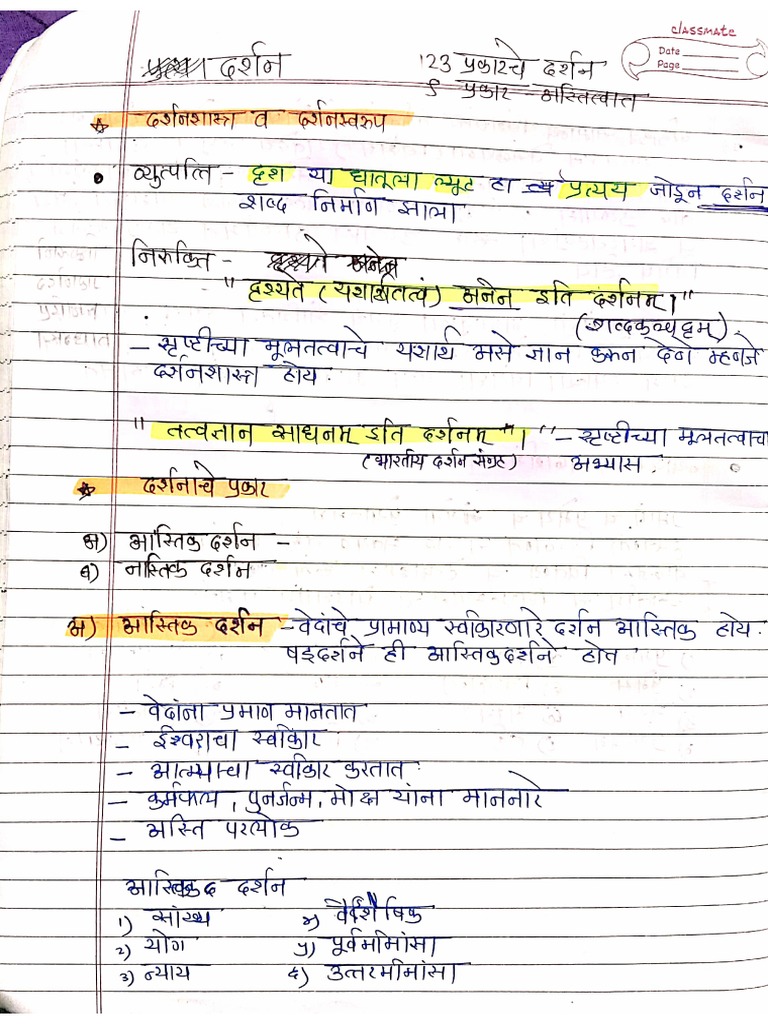 classmate
Date
Page
दर्शन
123 प्रकारचे दर्शन
९ प्रकार - अस्तित्वात
दर्शनशास्त्र व दर्शनस्वरुप
व्युत्पत्ति - दृश या धातूला ल्युट हा प्रत्यय जोडून दर्शन
शब्द निर्माण झाला.
निरुक्ति -
" दृश्यते (यथार्थतत्वं) अनेन इति दर्शनम् ।"
(शब्दकल्पद्रुम)
- सृष्टीच्या मूलतत्वाचे यथार्थ असे ज्ञान करून देणे म्हणजे
दर्शनशास्त्र होय.
" तत्वज्ञान साधनम् इति दर्शनम् "। - सृष्टीच्या मूलतत्वाचा
(भारतीय दर्शन संग्रह) अभ्यास.
दर्शनाचे प्रकार
अ) आस्तिक दर्शन -
ब) नास्तिक दर्शन
अ) आस्तिक दर्शन - वेदांचे प्रामाण्य स्वीकारणारे दर्शन आस्तिक होय.
षड्दर्शने ही आस्तिकदर्शने होत
- वेदांना प्रमाण मानतात
- ईश्वराचा स्वीकार
- आत्म्याचा स्वीकार करतात.
- कर्मफल, पुनर्जन्म, मोक्ष यांना माननारे
- अस्ति परलोक
आस्तिक दर्शन
1) सांख्य ४) वैशेषिक
2) योग ५) पूर्वमीमांसा
3) न्याय ६) उत्तरमीमांसा